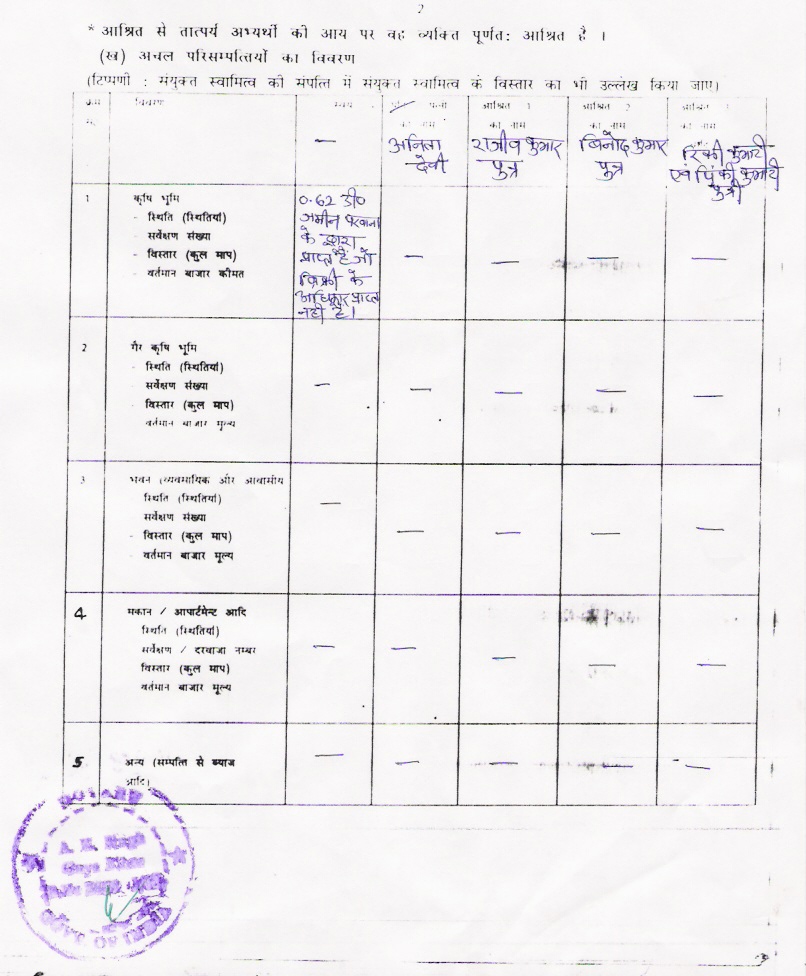 2
* आश्रित से तात्पर्य अभ्यर्थी की आय पर वह व्यक्ति पूर्णत: आश्रित है ।
(ख) अचल परिसम्पत्तियों का विवरण
(टिप्पणी : संयुक्त स्वामित्व की संपत्ति में संयुक्त स्वामित्व के विस्तार का भी उल्लेख किया जाए)
क्रम सं. विवरण स्वयं पत्नी का नाम आश्रित 1 का नाम आश्रित 2 का नाम आश्रित 3 का नाम
— अनिता देवी राजीव कुमार पुत्र बिनोद कुमार पुत्र रिंकी कुमारी एवं पिंकी कुमारी पुत्री
1 कृषि भूमि
- स्थिति (स्थितियां)
- सर्वेक्षण संख्या
- विस्तार (कुल माप)
- वर्तमान बाजार कीमत
0.62 डी०
जमीन परवाना
के द्वारा
प्राप्त है जो
बिक्री के
अधिकार प्राप्त
नहीं है।
— — — —
2 गैर कृषि भूमि
- स्थिति (स्थितियां)
- सर्वेक्षण संख्या
- विस्तार (कुल माप)
वर्तमान बाजार मूल्य
— — — — —
3 भवन (व्यवसायिक और आवासीय
स्थिति (स्थितियां)
सर्वेक्षण संख्या
- विस्तार (कुल माप)
- वर्तमान बाजार मूल्य
— — — — —
4 मकान / आपार्टमेन्ट आदि
स्थिति (स्थितियां)
सर्वेक्षण / दरवाजा नम्बर
विस्तार (कुल माप)
वर्तमान बाजार मूल्य
— — — — —
5 अन्य (सम्पत्ति से ब्याज
आदि)
— — — — —
NOTARY
A. K. Singh
GOVT. OF INDIA